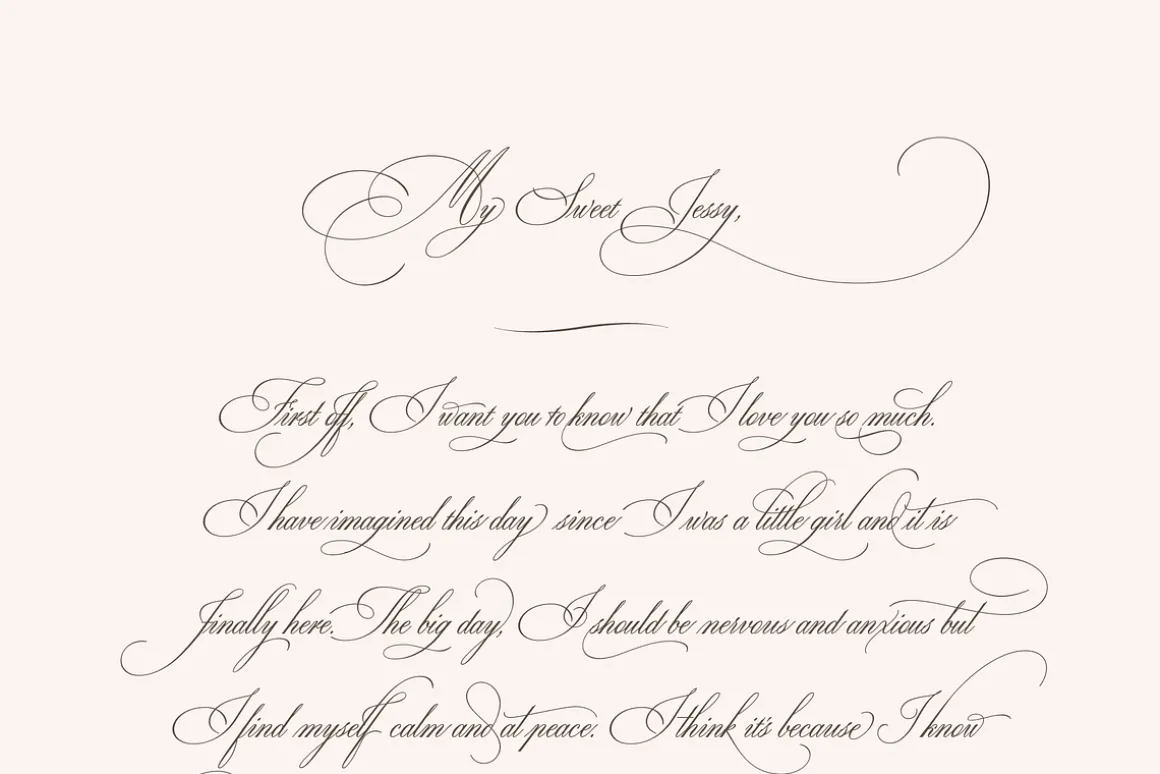 My Sweet Jessy,
First off, I want you to know that I love you so much.
I have imagined this day since I was a little girl and it is
finally here. The big day, I should be nervous and anxious but
I find myself calm and at peace. I think it's because I know